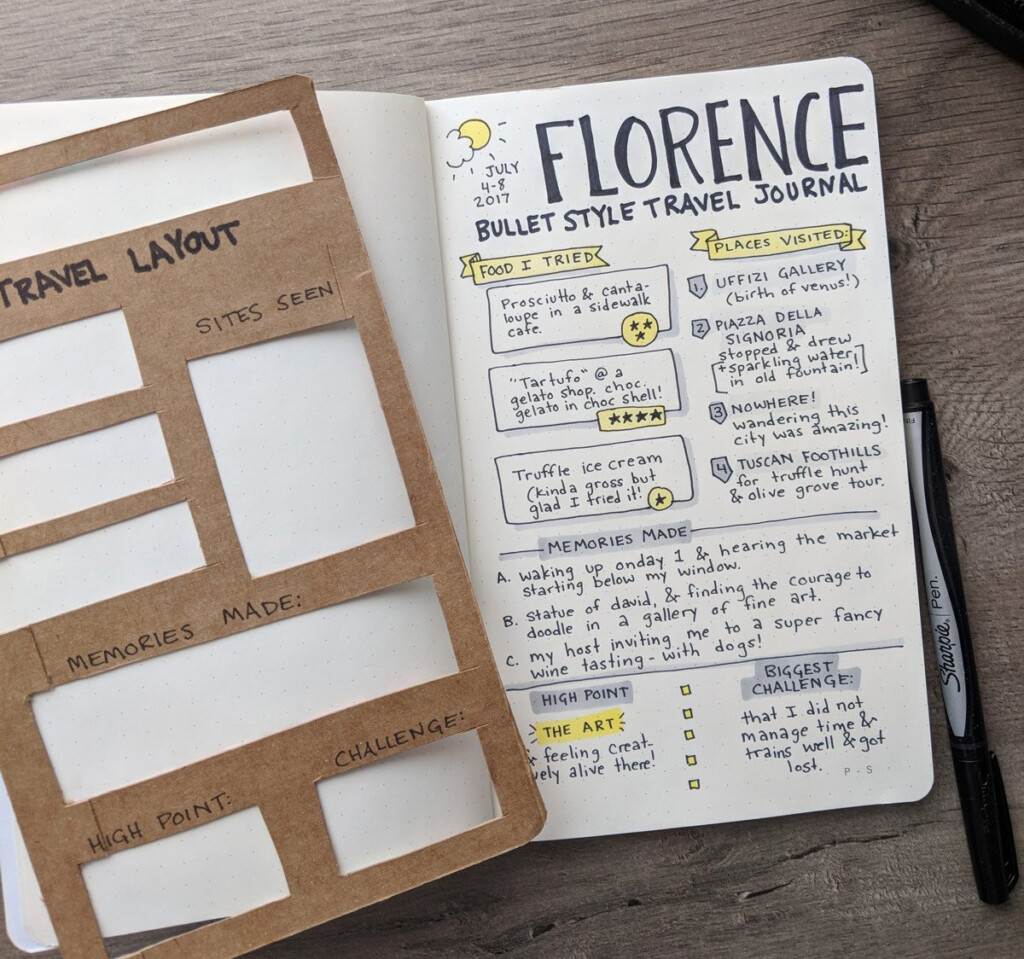 TRAVEL LAYOUT
SITES SEEN
MEMORIES MADE:
CHALLENGE:
HIGH POINT:
JULY
4-8
2017
FLORENCE
BULLET STYLE TRAVEL JOURNAL
FOOD I TRIED
Prosciutto & canta-
loupe in a sidewalk
cafe.
"Tartufo" @ a
gelato shop. choc.
gelato in choc shell!
Truffle ice cream
(kinda gross but
glad I tried it!
PLACES VISITED:
1. UFFIZI GALLERY
(birth of venus!)
2 PIAZZA DELLA
SIGNORIA
stopped & drew
+sparkling water
in old fountain!
3 NOWHERE!
wandering this
city was amazing!
4 TUSCAN FOOTHILLS
for truffle hunt
& olive grove tour.
MEMORIES MADE
A. waking up onday 1 & hearing the market
starting below my window.
B. statue of david, & finding the courage to
doodle in a gallery of fine art.
C. my host inviting me to a super fancy
wine tasting - with dogs!
HIGH POINT
THE ART
& feeling creat-
vely alive there!
BIGGEST
CHALLENGE:
that I did not
manage time &
trains well & got
lost.
P-S
Sharpie Pen.